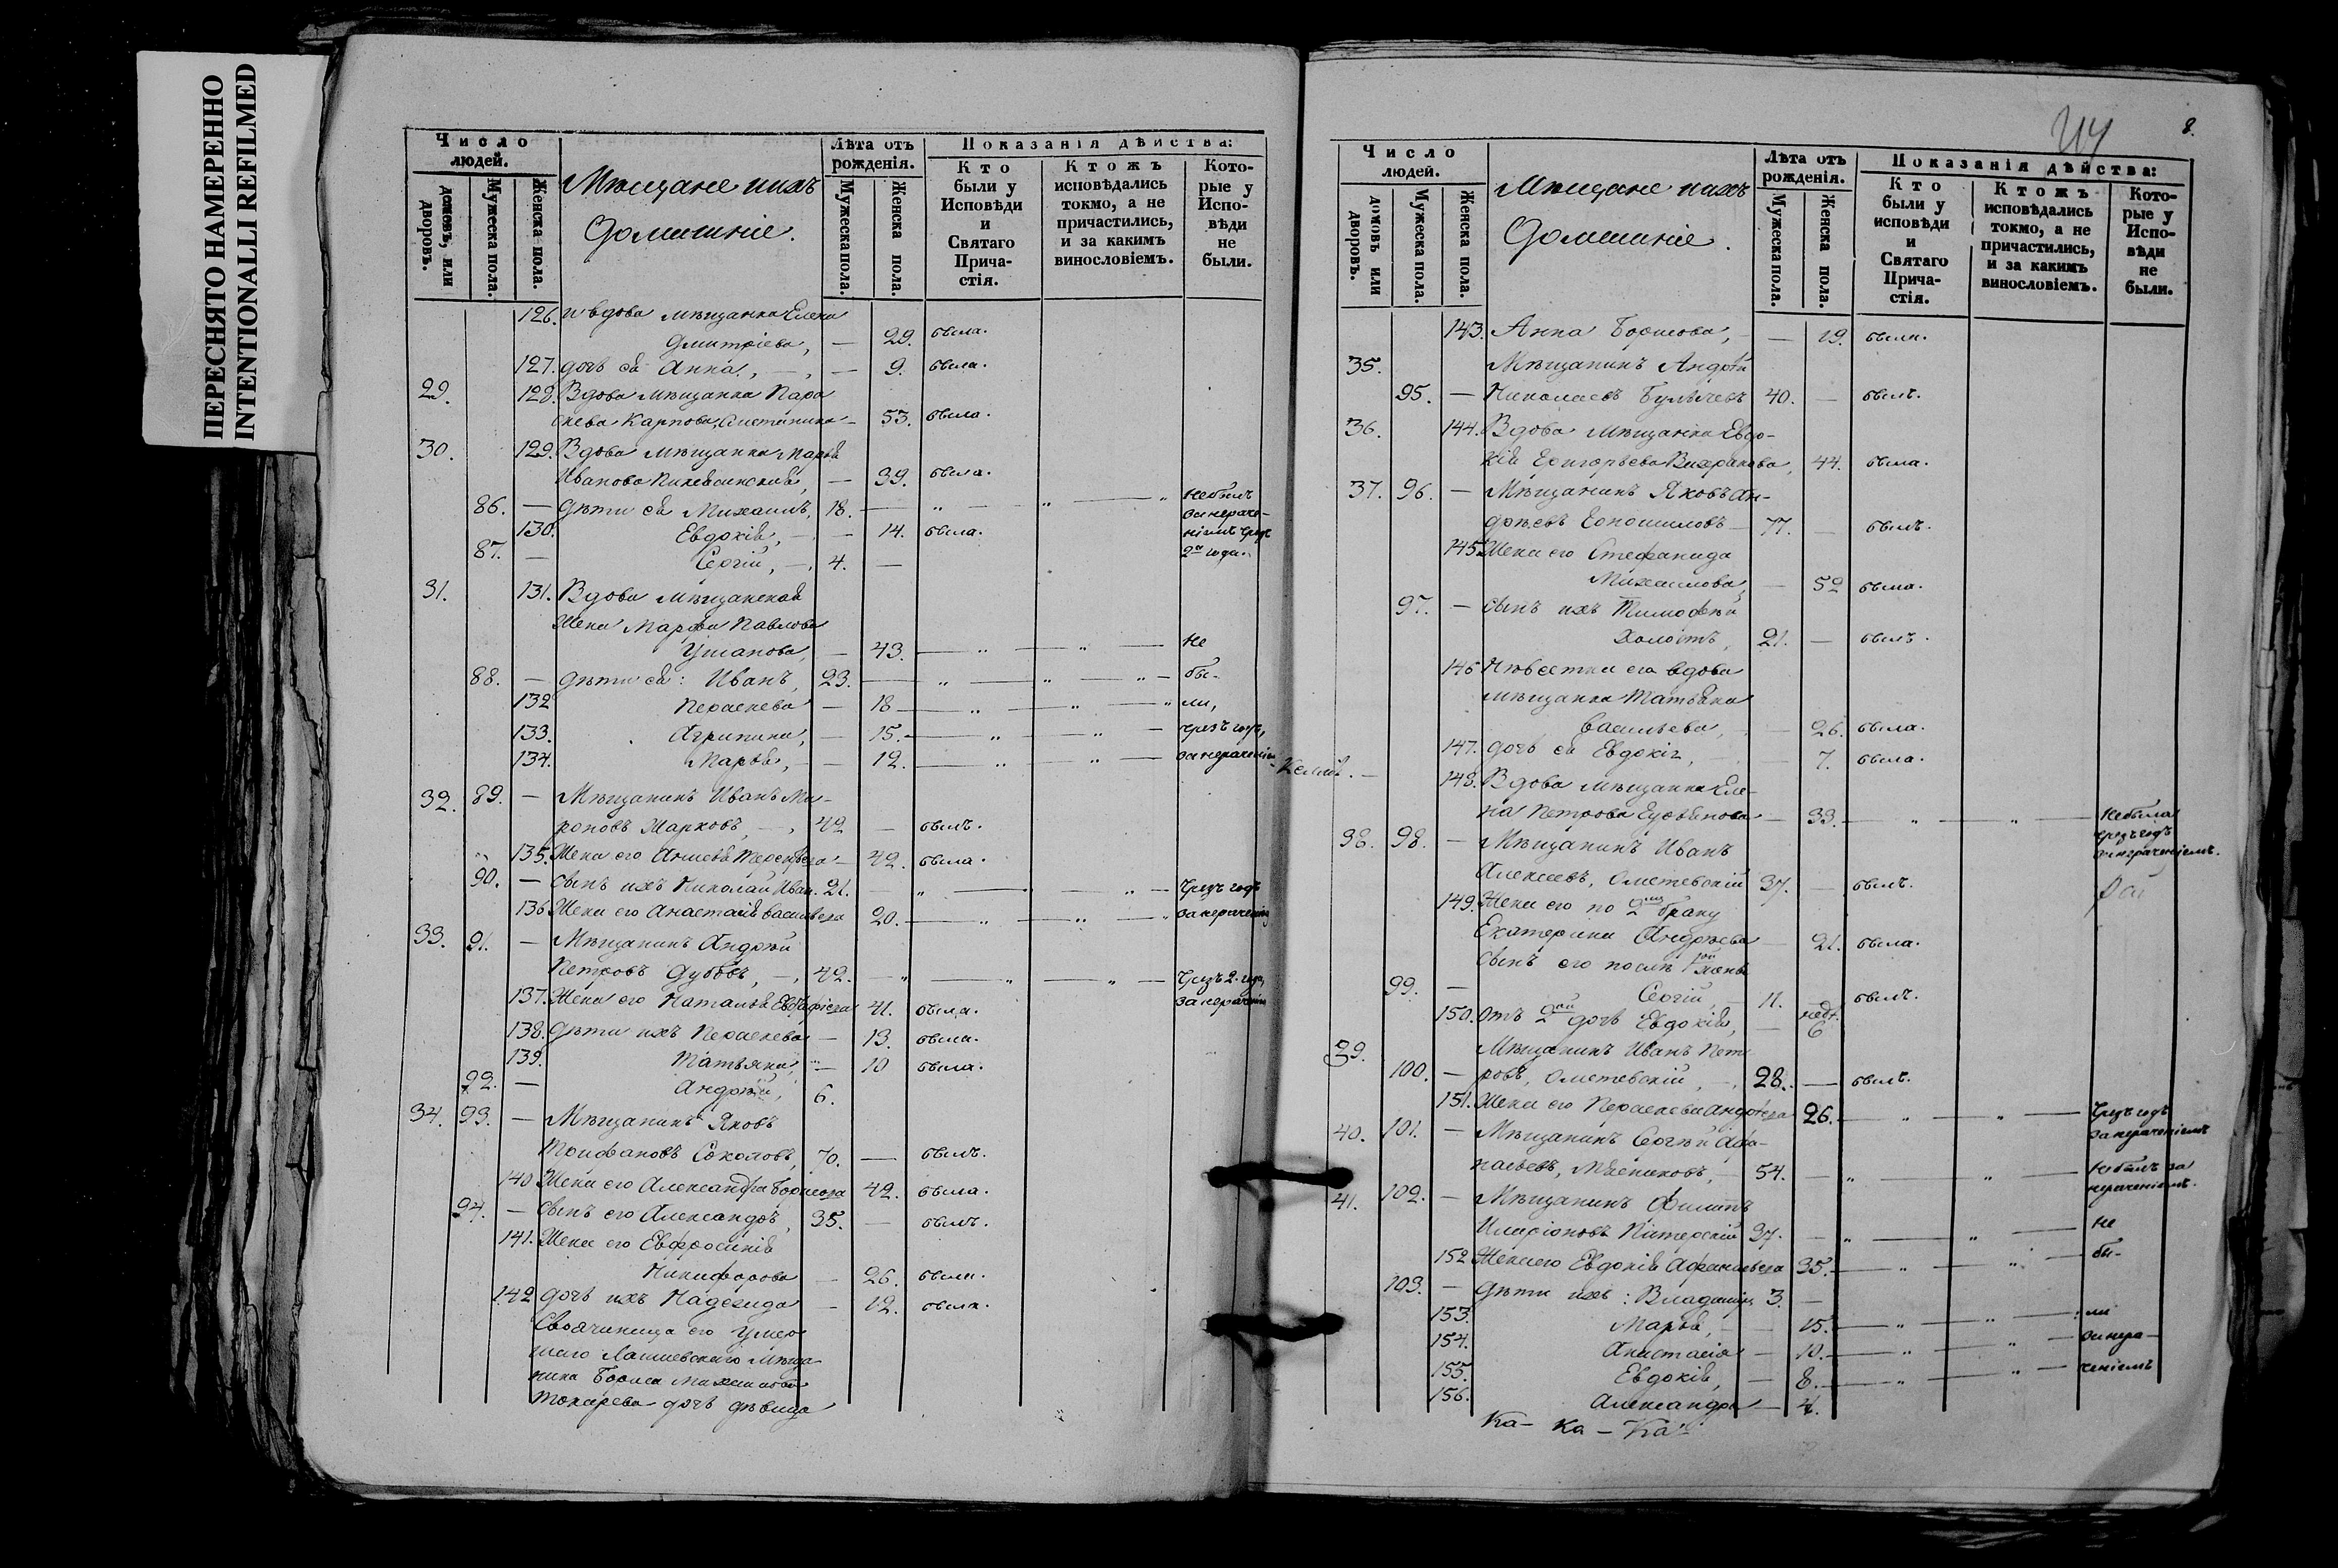 ПЕРЕСНЯТО НАМЕРЕННО
INTENTIONALLI REFILMED
Число людей.
домовъ, или дворовъ.
Мужеска пола.
Женска пола.
Мѣщане и ихъ
Домашніе.
Лѣта отъ рожденія.
Мужеска пола.
Женска пола.
Показанія дѣйства:
Кто были у Исповѣди и Святаго Прича-стія.
Ктожъ исповѣдались токмо, а не причастились, и за какимъ винословіемъ.
Кото-рые у Испо-вѣди не были.
126. и вдова мѣщанка Елена
Дмитріева, — 29. была.
127. дочь ея Анна, — 9. была.
29. 128. Вдова мѣщанка Пара
скева Карпова, — 53. была.
30. 129. Вдова мѣщанка Марья
Иванова — 39. была.
86. — дѣти ея Михаилъ, 18. — небылъ
за нераче-
130. Евдокія, — 14. была. ніемъ чрезъ
87. — Сергій, — 4. — 2а года.
31. 131. Вдова мѣщанская
жена Марфа Павлова
Ушакова, — 43. — не
88. — дѣти ея: Иванъ, 23. — бы-
132 Параскева — 18 — ли,
133. Агрипина, — 15. — чрезъ годъ,
134. Марья, — 12. — за нераченіе
32. 89. — Мѣщанинъ Иванъ Ми-
роновъ Марковъ, — 42 — былъ.
135. Жена его Терентьева — 42. была.
90. — Сынъ ихъ Николай Иван. 21. — Чрезъ годъ
136 Жена его Анастасія Васильева 20. — за нераченіем
33. 91. — Мѣщанинъ Андрей
Петровъ Дубовъ, — 42. — Чрезъ 2. года,
137. Жена его Наталья 41. была. за нерачені
138. Дѣти ихъ Параскева — 13. была.
139. Татьяна, — 10 была.
92. — Андрей, 6.
34. 93. — Мѣщанинъ Яковъ
Трифановъ Соколовъ, 70. — былъ.
140 Жена его Александра Борисова 42. была.
94. — Сынъ его Александръ, 35. — былъ.
141. Жена его Евфросинія
Никифорова — 26. была.
142 дочь ихъ Надежда — 12. была.
Своячиница его умер
шаго Лаишевскаго мѣща
нина Бориса Михайлова
Токарева дочь дѣвица
8.
Число людей.
домовъ или дворовъ.
Мужеска пола.
Женска пола.
Мѣщане и ихъ
Домашніе.
Лѣта отъ рожденія.
Мужеска пола.
Женска пола.
Показанія дѣйства:
Кто были у исповѣди и Святаго Прича-стія.
Ктожъ исповѣдались токмо, а не причастились, и за какимъ винословіемъ.
Кото-рые у Испо-вѣди не были.
143. Анна Борисова, — 19. была.
35. Мѣщанинъ Андрей
95. — Николаевъ Булычевъ 40. — былъ.
36. 144. Вдова мѣщанка Евдо-
кія Григорьева 44. была.
37. 96. — Мѣщанинъ Яковъ Ан-
дреевъ 77. — былъ.
145. Жена его Стефанида
Михайлова, — 52 была.
97. — Сынъ ихъ Тимофей
холостъ, 21. — былъ.
146 Невестка его вдова
мѣщанка Татьяна
Васильева, — 26. была.
147. дочь ея Евдокія, 7. была.
148. Вдова мѣщанка Еле-
на Петрова — 33. — небыла
чрезъ годъ
38. 98. — Мѣщанинъ Иванъ за нераченіемъ.
Алексеевъ, Ометевскій 37. — былъ.
149. Жена его по 2му браку
Екатерина Андреева — 21. была.
Сынъ его 1ой жены
99. — Сергій, — 11. былъ.
150. Отъ 2ой дочь Евдокія, — нед. 6
39. Мѣщанинъ Иванъ Пет
100. — ровъ, Ометевскій, — 28. — былъ.
151. Жена его Параскева Андреева 26. — Чрезъ годъ
за нераченіемъ
40. 101. — Мѣщанинъ Сергѣй Афа-
насьевъ, Мясниковъ, — 54. — небылъ за
нераченіемъ.
41. 102. — Мѣщанинъ Филиппъ
Иларіоновъ Питерскій 37. — не
152 Жена его Евдокія Афанасьева 35. — бы-
103. — Дѣти ихъ: Владиміръ 3. —
153. Марья, — 15. — ли
154. Анастасія — 10. — за нера-
155. Евдокія, — 8. — ченіемъ
156. Александра — 4.
Ка- ка - Ка